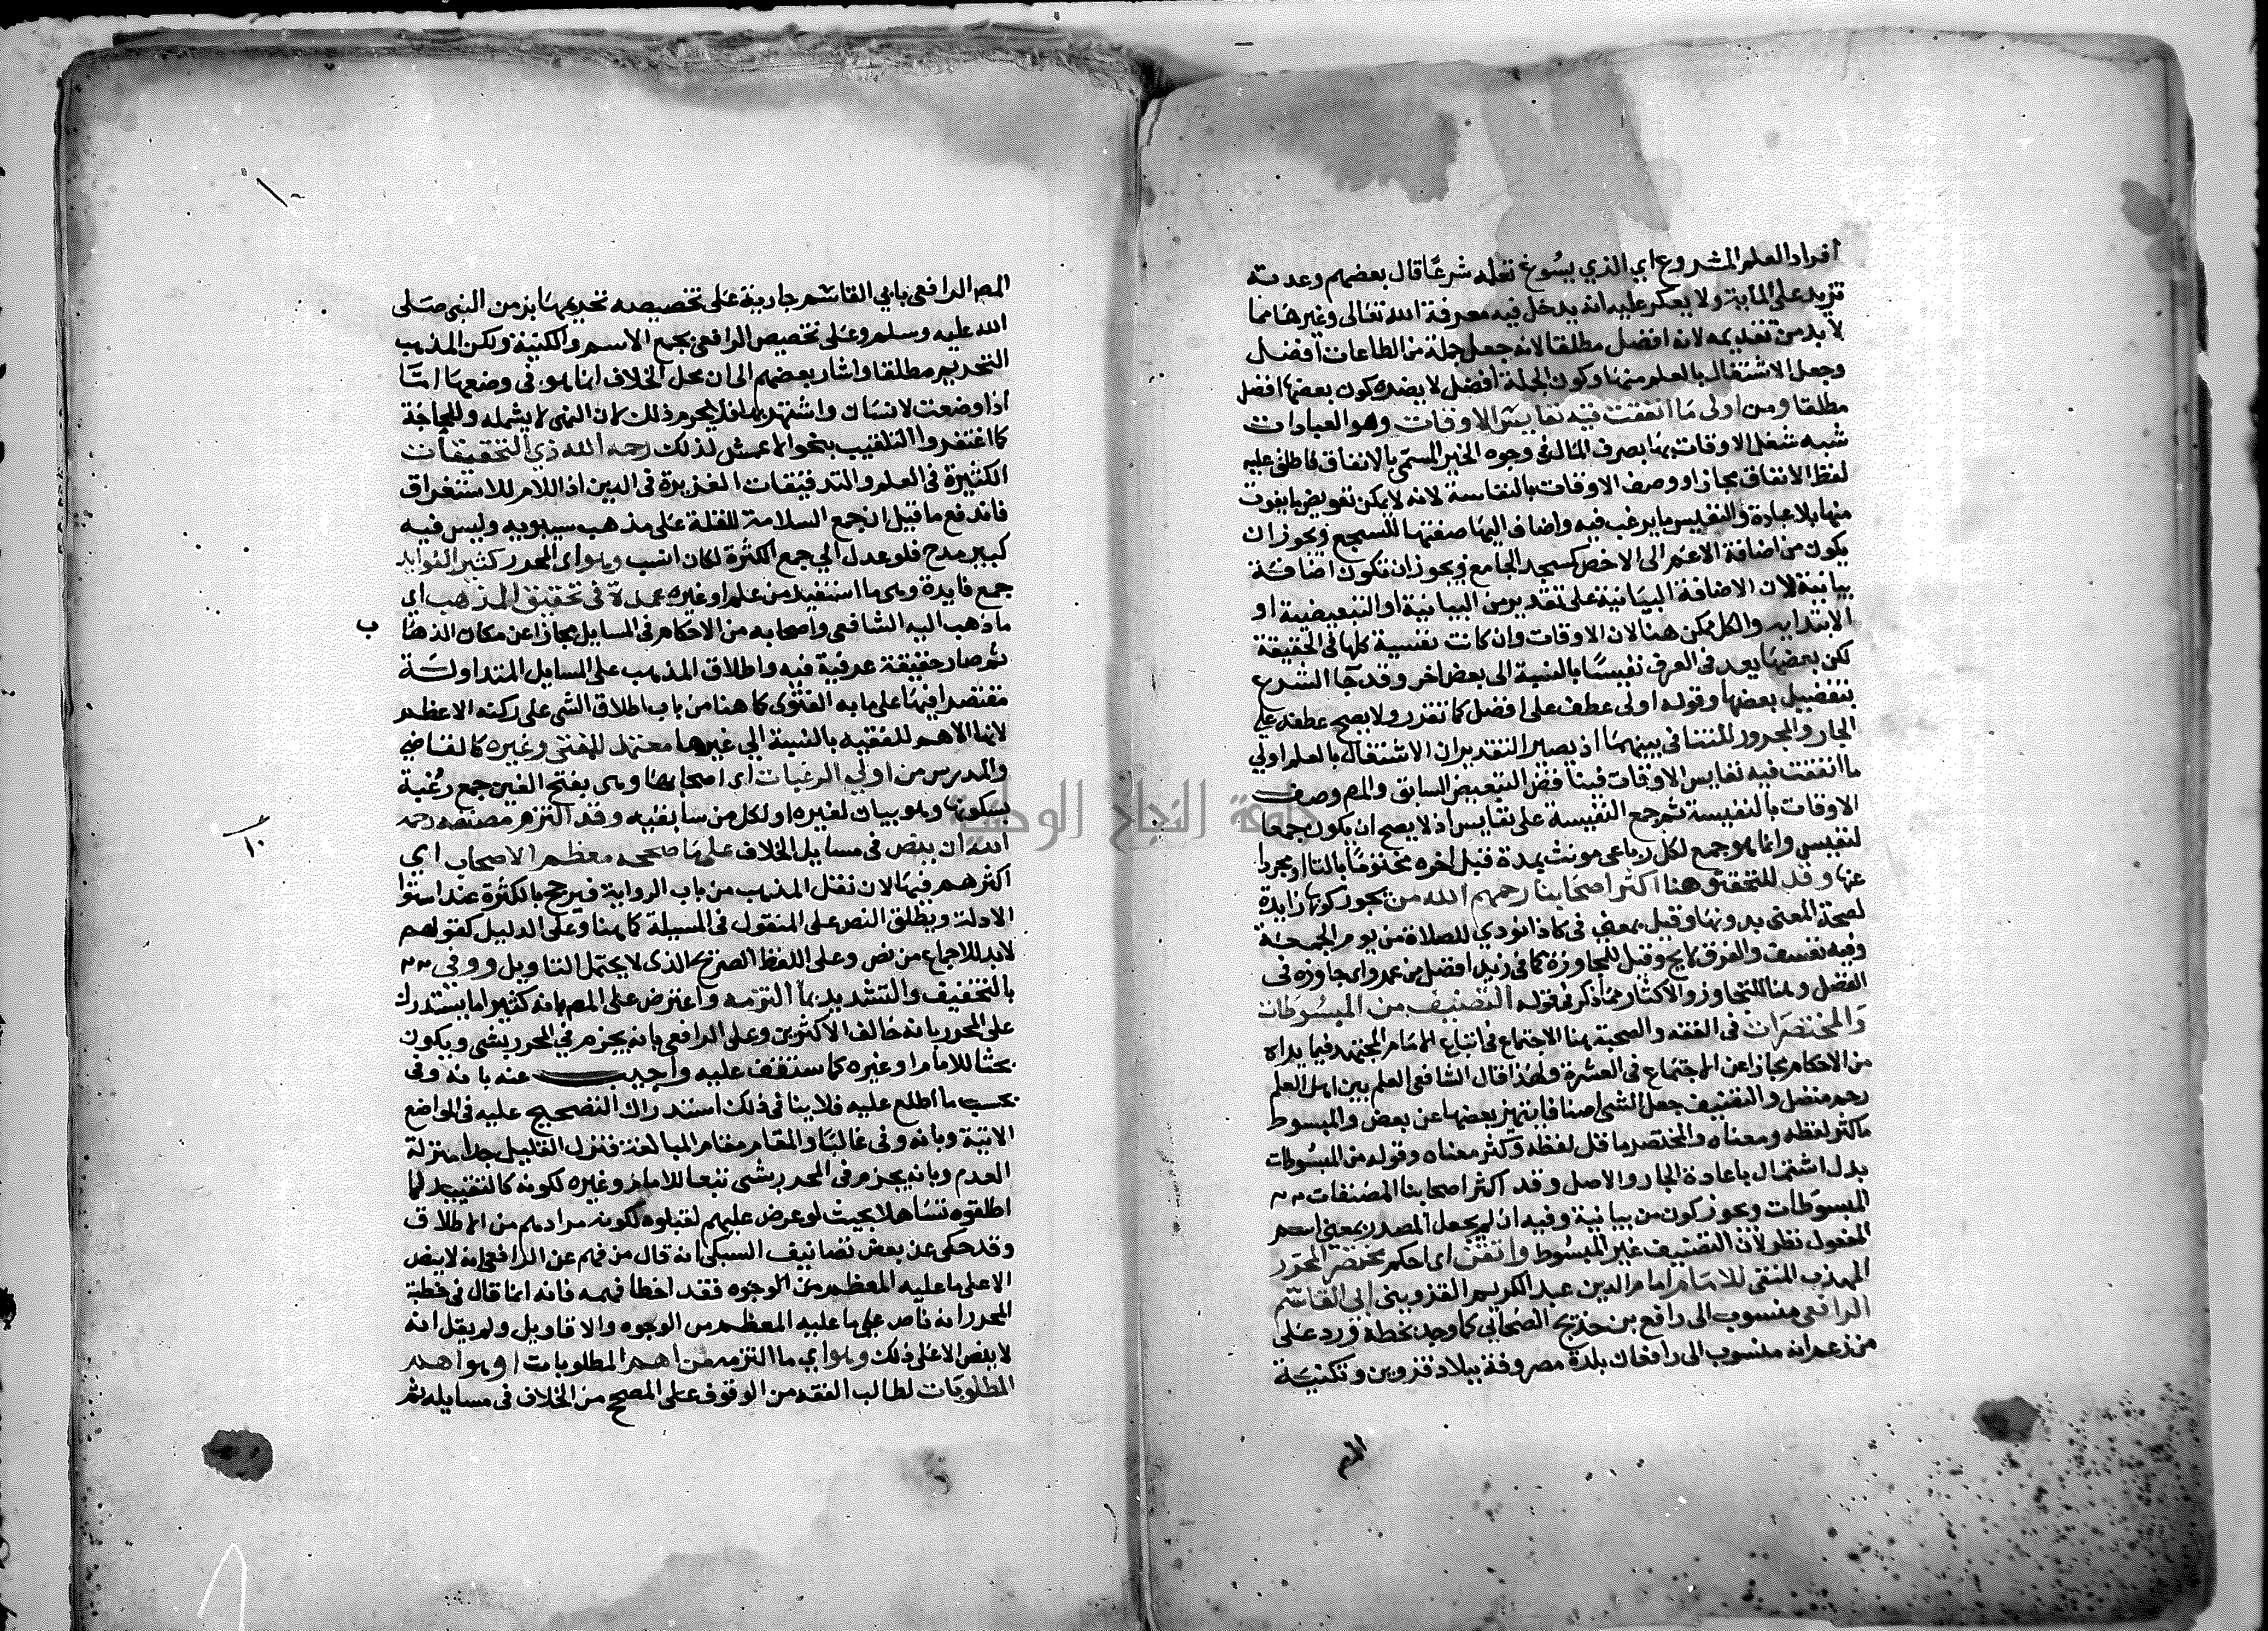 افراد العلم المشروع اي الذي يسوغ تعلمه شرعا قال بعضهم وعدته
تزيد على المائة ولا يعكر عليه انه يدخل فيه معرفة الله تعالى وغيرها مما
لا بد من تقديمه لانه افضل مطلقا لانه جعل جملة من الطاعات افضل
وجعل الاشتغال بالعلم منها وكون الجملة افضل لا يضره كون بعضها افضل
مطلقا ومن اولى ما انفقت فيه نفايس الاوقات وهو العبادات
شبه شغل الاوقات بها بصرف المال في وجوه الخير المسمى بالانفاق فاطلق عليه
لفظ الانفاق مجازا ووصف الاوقات بالنفاسة لانه لا يمكن تعويض ما يفوت
منها بلا عبادة والنفيس ما يرغب فيه واضاف اليها صفتها للسجع ويجوز ان
يكون من اضافة الاعم الى الاخص كمسجد الجامع ويجوز ان تكون اضافة
بيانية لان الاضافة البيانية على تقدير من البيانية او التبعيضية او
الابتدايه والكل ممكن هنا لان الاوقات وان كانت نفيسة كلها في الحقيقة
لكن بعضها يعد في العرف نفيسا بالنسبة الى بعض اخر وقد جا الشرع
بتفضيل بعضها وقوله اولى عطف على افضل كما تقرر ولا يصح عطفه على
الجار والمجرور للتنافي بينهما اذ يصير التقدير ان الاشتغال بالعلم اولي
ما انفقت فيه نفايس الاوقات فينافض التبعيض السابق والمص وصف
الاوقات بالنفيسة ثم جمع النفيسة على نفايس اذ لا يصح ان يكون جمعا
لنفيس وانما هو جمع لكل رباعى مونث بمدة قبل اخره مختوما بالتا او مجردا
عنها وقد للتحقيق هنا اكثر اصحابنا رحمهم الله من يجوز كونها زايدة
لصحة المعنى بدونها وقيل بمعنى في كاذا نودي للصلاة من يوم الجمعة
وفيه تعسف والفرق لايح وقيل للمجاوزة كما في زيد افضل من عمرو اي جاوزه في
الفضل وهنا للتجاوز والاكثار مما ذكر في قوله التصنيف من المبسوطات
والمختصرات في الفقه والصحبة هنا الاجتماع في اتباع الامام المجتهد فيما يراه
من الاحكام مجازا عن الاجتماع في العشرة ولهذا قال الشافعي العلم بين اهل العلم
رحم متصل والتصنيف جعل الشى اصنافا يتميز بعضها عن بعض والمبسوط
ما كثر لفظه ومعناه والمختصر ما قل لفظه وكثر معناه وقوله من المبسوطات
بدل اشتمال باعادة الجار والاصل وقد اكثر اصحابنا المصنفات
المبسوطات ويجوز كون من بيانية وفيه ان لم يجعل المصدر بمعنى اسم
المفعول نظر لان التصنيف غير المبسوط واتقن اى احكم مختصر المحرر
المهذب المنقى للامام امام الدين عبد الكريم القزويني ابي القاسم
الرافعى منسوب الى رافع بن خديج الصحابي كما وجد بخطه ورد على
من زعم انه منسوب الى رافعان بلدة معروفة ببلاد قزوين وتكنية
المص
المص الرافعى بابي القاسم جارية على تخصيصه تحريمها بزمن النبى صلى
الله عليه وسلم وعلى تخصيص الرافعى بجمع الاسم والكنية ولكن المذهب
التحريم مطلقا واشار بعضهم الى ان محل الخلاف انما هو في وضعها اما
اذا وضعت لانسان واشتهر بها فلا يحرم ذلك لان النهى لا يشمله وللحاجة
كما اغتفروا التلقيب بنحو الاعمش لذلك رحمه الله ذي التحقيقات
الكثيرة في العلم والتدقيقات الغزيرة في الدين اذ اللام للاستغراق
فاندفع ما قيل ان جمع السلامة للقلة على مذهب سيبويه وليس فيه
كبير مدح فلو عدل الى جمع الكثرة لكان انسب وهو اى المحرر كثير الفوايد
جمع فايدة وهى ما استفيد من علم او غيره عمدة في تحقيق المذهب اى
ما ذهب اليه الشافعى واصحابه من الاحكام في المسايل مجازا عن مكان الذها
ب
ثم صار حقيقة عرفية فيه واطلاق المذهب على المسايل المتداولة
مقتصرا فيها على ما به الفتوى كما هنا من باب اطلاق الشى على ركنه الاعظم
لانها الاهم للفقيه بالنسبة الي غيرها معتمد للمفتي وغيره كالقاضي
والمدرس من اولى الرغبات اى اصحابها وهى بفتح الغين جمع رغبة
بسكونها وهو بيان لغيره او لكل من سابقيه وقد التزم مصنفه رحمه
الله ان ينص في مسايل الخلاف على ما صححه معظم الاصحاب اي
اكثرهم فيها لان نقل المذهب من باب الرواية فيرجح بالكثرة عند استوا
الادلة ويطلق النص على المنقول في المسيلة كما هنا وعلى الدليل كقولهم
لابد للاجماع من نص وعلى اللفظ الصريح الذى لا يحتمل التاويل ووفى
بالتخفيف والتشديد بما التزمه واعترض على المص بانه كثيرا ما يستدرك
على المحرر بانه خالف الاكثرين وعلى الرافعى بانه يجزم في المحرر بشى ويكون
بحثا للامام او غيره كما ستقف عليه واجيب عنه بانه وفى
بحسب ما اطلع عليه فلا ينافى ذلك استدراك التصحيح عليه في المواضع
الاتية وبانه وفى غالبا والمقام مقام المبالغة فنزل القليل جدا منزلة
العدم وبانه يجزم في المحرر بشى تبعا للامام وغيره لكونه كالتقييد لما
اطلقوه تساهلا بحيث لو عرض عليهم لقبلوه لكونه مرادهم من الاطلاق
وقد حكى عن بعض تصانيف السبكى انه قال من فهم عن الرافعى انه لا ينص
الا على ما عليه المعظم من الوجوه فقد اخطا فهمه فانه انما قال في خطبة
المحرر انه ناص على ما عليه المعظم من الوجوه والاقاويل ولم يقل انه
لا ينص الا على ذلك وهو اي ما التزمه من اهم المطلوبات او هو اهم
المطلوبات لطالب الفقه من الوقوف على المصحح من الخلاف في مسايله ثم